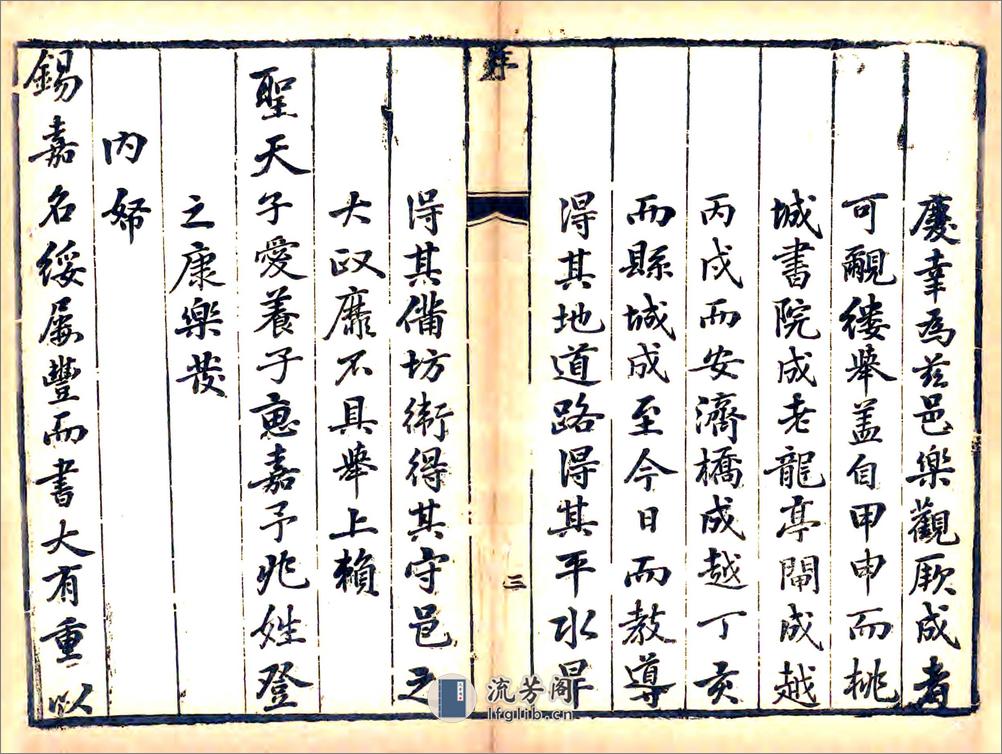 慶幸為茲邑樂觀厥成者
可覼縷舉盖自甲申而桃
城書院成老龍亭閘成越
丙戌而安濟橋成越丁亥
而縣城成至今日而教導
得其地道路得其平水旱
序
三
得其備坊術得其守邑之
大政靡不具舉上賴
聖天子愛養子惠嘉予兆姓登
之康樂發
內帑
錫嘉名綏屢豐而書大有重以
流芳阁
lfglib.cn